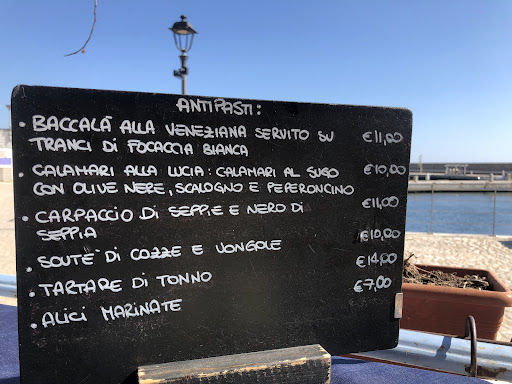 ANTIPASTI:
• BACCALÀ ALLA VENEZIANA SERVITO SU €11,00
TRANCI DI FOCACCIA BIANCA
• CALAMARI ALLA LUCIA: CALAMARI AL SUGO €10,00
CON OLIVE NERE, SCALOGNO E PEPERONCINO
• CARPACCIO DI SEPPIE E NERO DI €11,00
SEPPIA
• SOUTÈ DI COZZE E VONGOLE €10,00
• TARTARE DI TONNO €14,00
• ALICI MARINATE €7,00